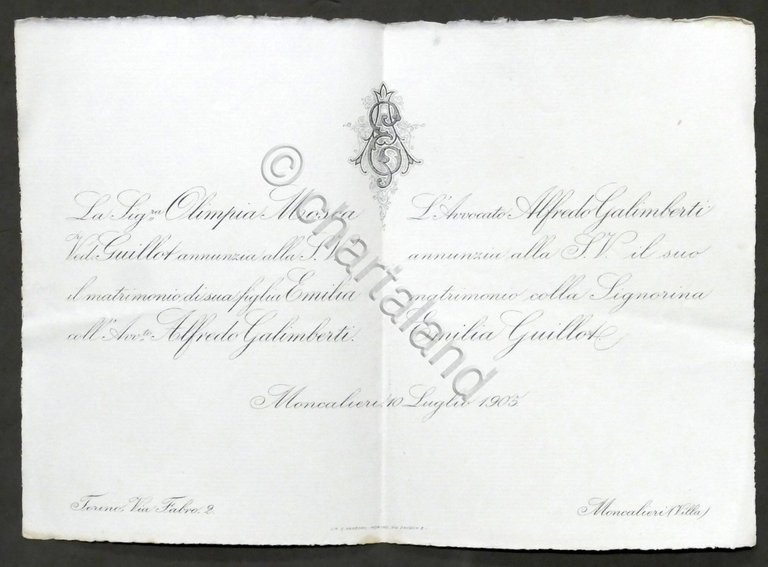 La Sig.ra Olimpia Mosca
Ved. Guillot annunzia alla S.V.
il matrimonio di sua figlia Emilia
coll'Avv.to Alfredo Galimberti.
L'Avvocato Alfredo Galimberti
annunzia alla S.V. il suo
matrimonio colla Signorina
Emilia Guillot
Moncalieri, 10 Luglio 1905
Torino, Via Fabro, 2
Moncalieri (Villa)
© chartaland